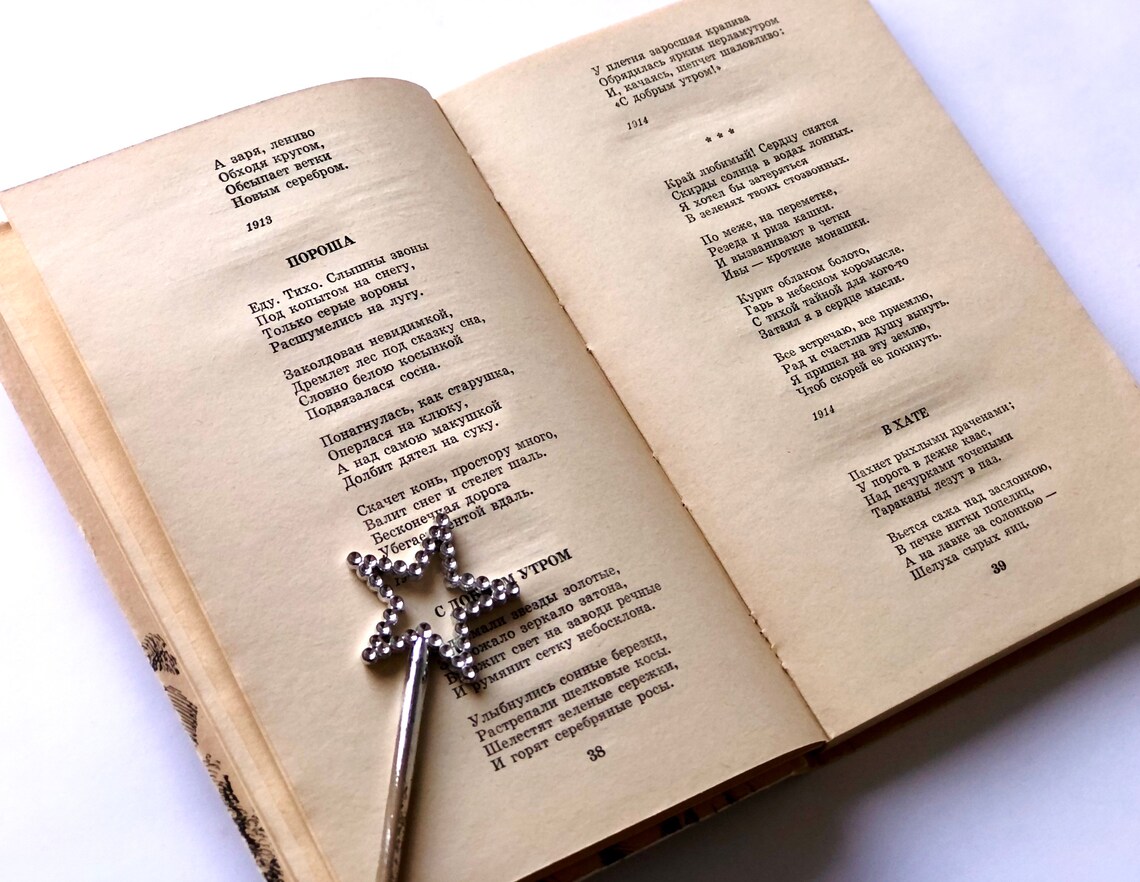 А заря, лениво
Обходя кругом,
Обсыпает ветки
Новым серебром.
1913
ПОРОША
Еду. Тихо. Слышны звоны
Под копытом на снегу,
Только серые вороны
Расшумелись на лугу.
Заколдован невидимкой,
Дремлет лес под сказку сна,
Словно белою косынкой
Подвязалася сосна.
Понагнулась, как старушка,
Оперлася на клюку,
А над самою макушкой
Долбит дятел на суку.
Скачет конь, простору много,
Валит снег и стелет шаль.
Бесконечная дорога
Убегает лентой вдаль.
С ДОБРЫМ УТРОМ
звезды золотые,
зеркало затона,
свет на заводи речные
И румянит сетку небосклона.
Улыбнулись сонные березки,
Растрепали шелковые косы.
Шелестят зеленые сережки,
И горят серебряные росы.
38
У плетня заросшая крапива
Обрядилась ярким перламутром
И, качаясь, шепчет шаловливо:
«С добрым утром!»
1914
* * *
Край любимый! Сердцу снятся
Скирды солнца в водах лонных.
Я хотел бы затеряться
В зеленях твоих стозвонных.
По меже, на переметке,
Резеда и риза кашки.
И вызванивают в четки
Ивы — кроткие монашки.
Курит облаком болото,
Гарь в небесном коромысле.
С тихой тайной для кого-то
Затаил я в сердце мысли.
Все встречаю, все приемлю,
Рад и счастлив душу вынуть.
Я пришел на эту землю,
Чтоб скорей ее покинуть.
1914
В ХАТЕ
Пахнет рыхлыми драченами;
У порога в дежке квас,
Над печурками точеными
Тараканы лезут в паз.
Вьется сажа над заслонкою,
В печке нитки попелиц,
А на лавке за солонкою —
Шелуха сырых яиц.
39